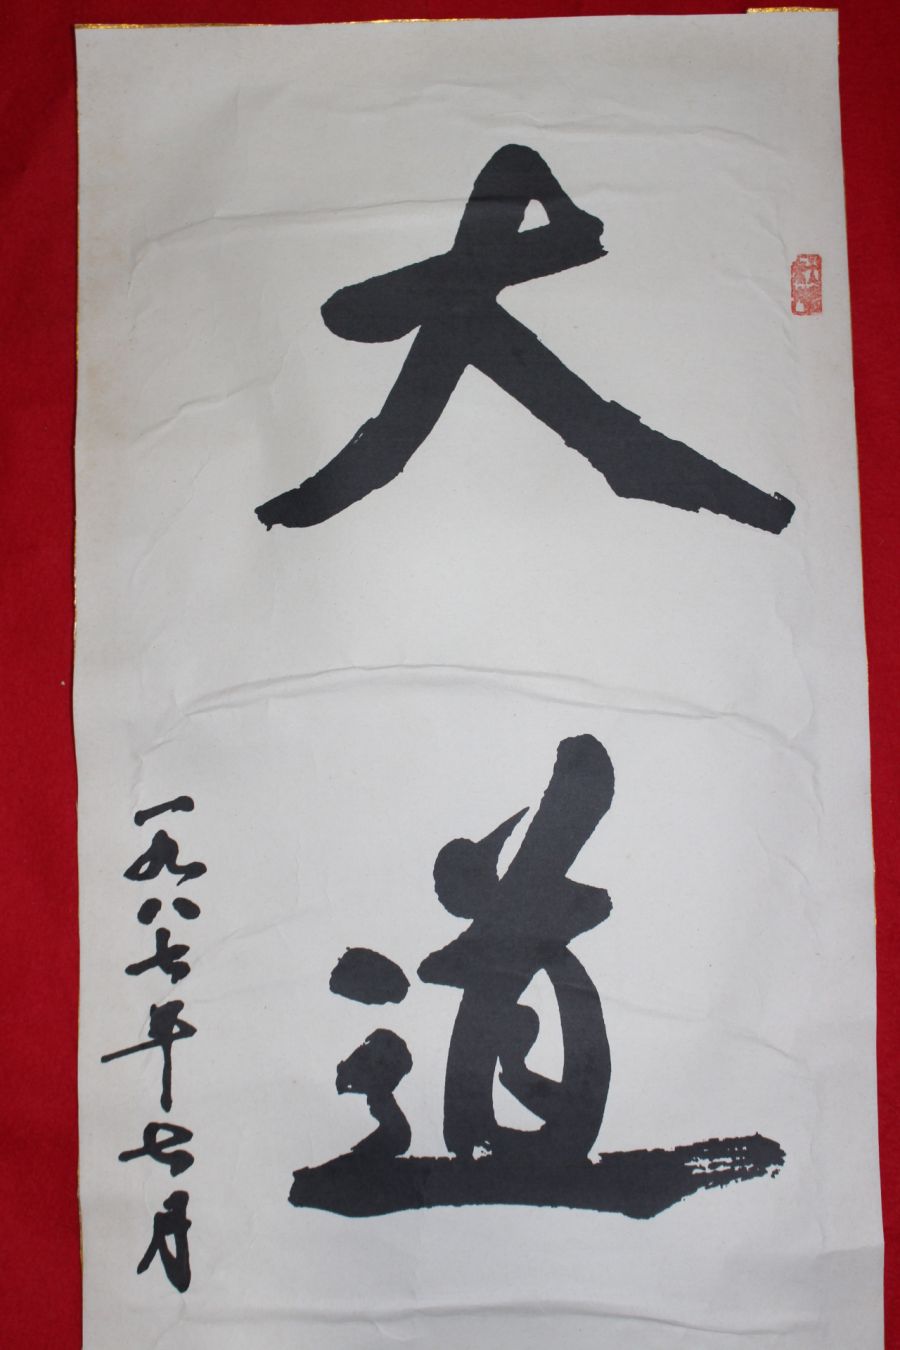 大道
一九八七年七月